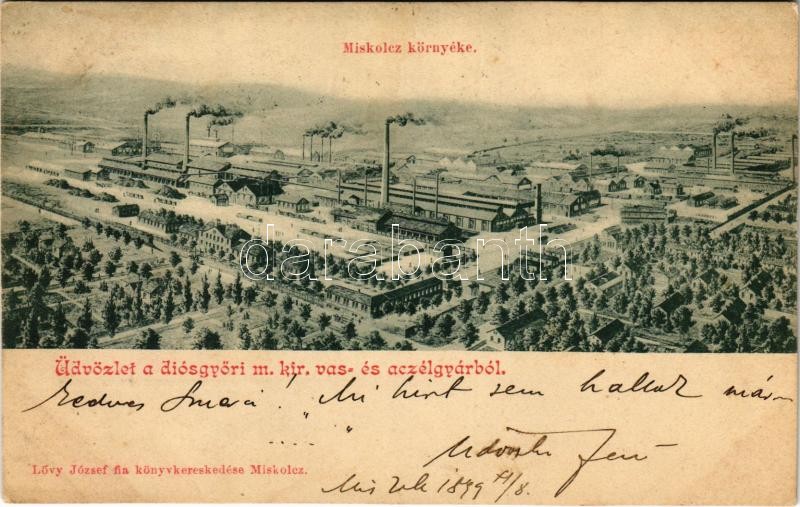 Miskolcz környéke.
darabanth
Üdvözlet a diósgyőri m. kir. vas- és aczélgyárból.
Kedves ! Mi hirt sem hallok már
.... "   "
Jenő
Lővy József fia könyvkereskedése Miskolcz.
1899 /8.